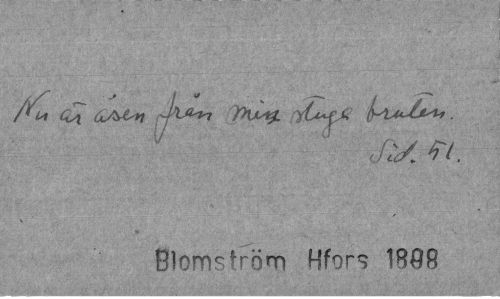 Nu är åsen från min stuga bruten.
Sid. 51.
Blomström Hfors 1898